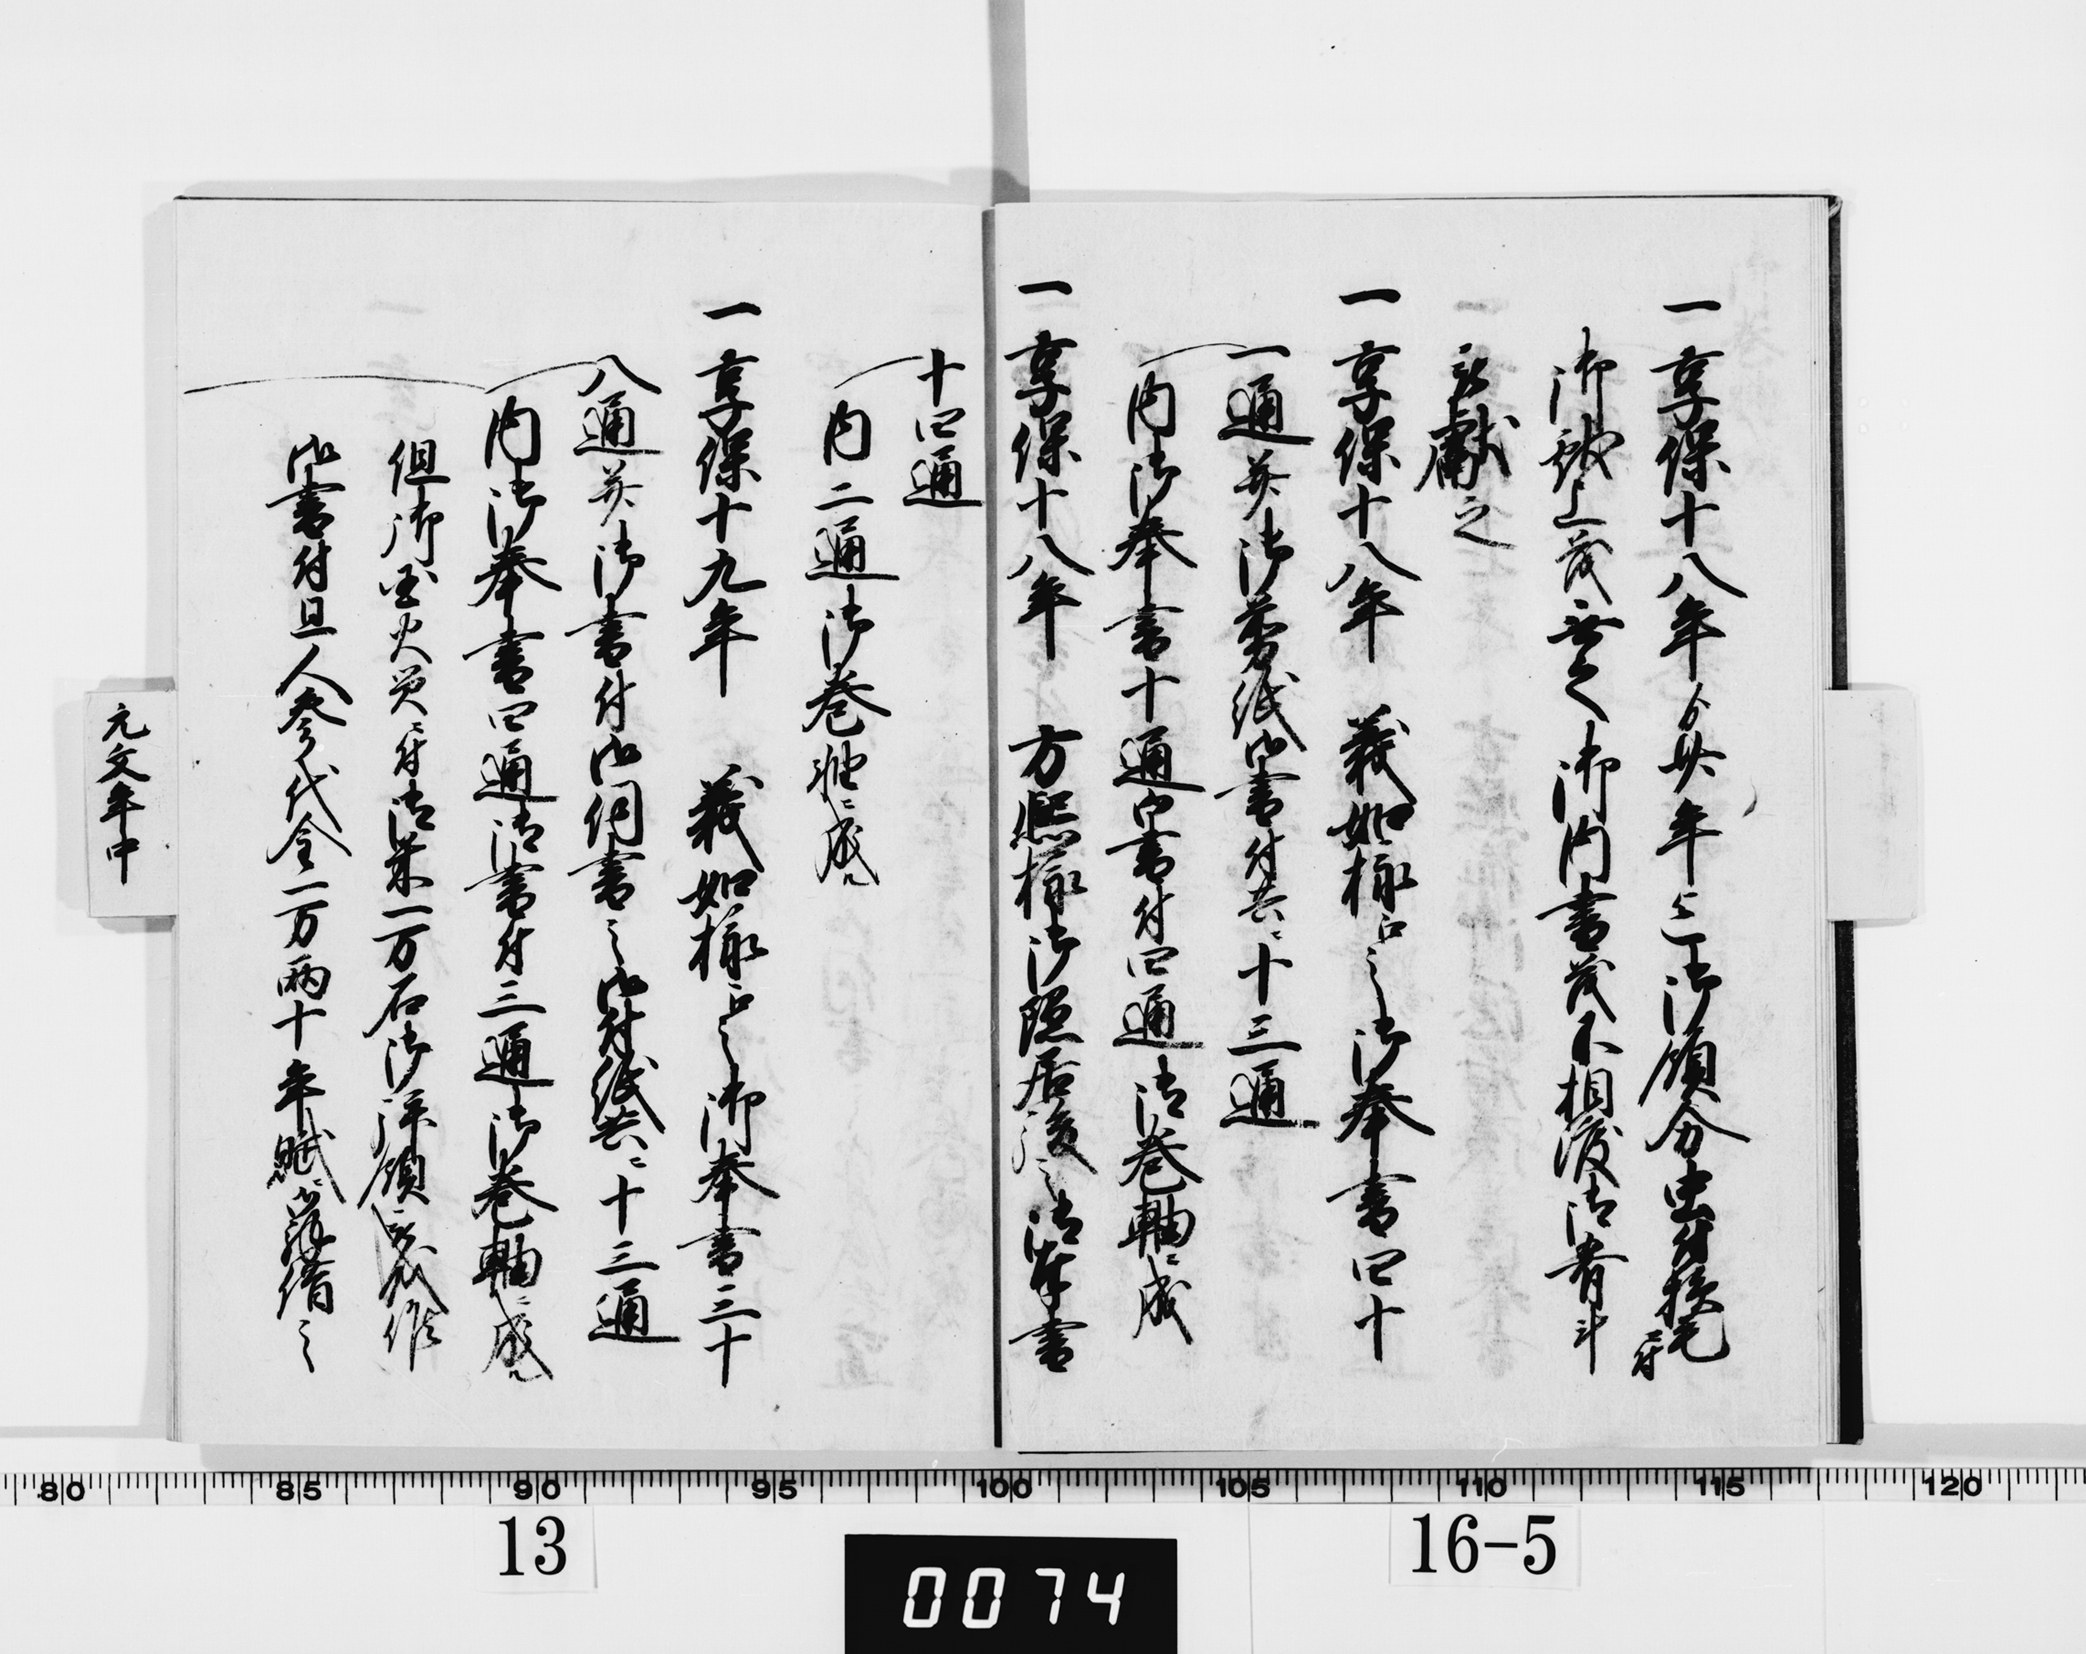 一享保十八年ゟ其年迄御領分虫付損毛ニ付
御献上茂無之御内書茂不相渡御肴斗
被献之
一享保十八年 義如様江之御奉書四十
一通并御剪紙御書付共ニ十三通
内御奉書十通御書付四通御巻軸ニ成
一享保十八年 方熈様御隠居後之御奉書
十四通
内二通御巻軸ニ成ル
一享保十九年 義如様江之御奉書三十
八通并御書付御伺書之御付紙共ニ十三通
内御奉書四通御書付三通御巻軸ニ成ル
但御国火災ニ付御米一万石御拝領被成候
御書付且人参代金一万両十年賦ニ御拝借之
元文年中
80 85 90 95 100 105 110 115 120
13
16-5
0074